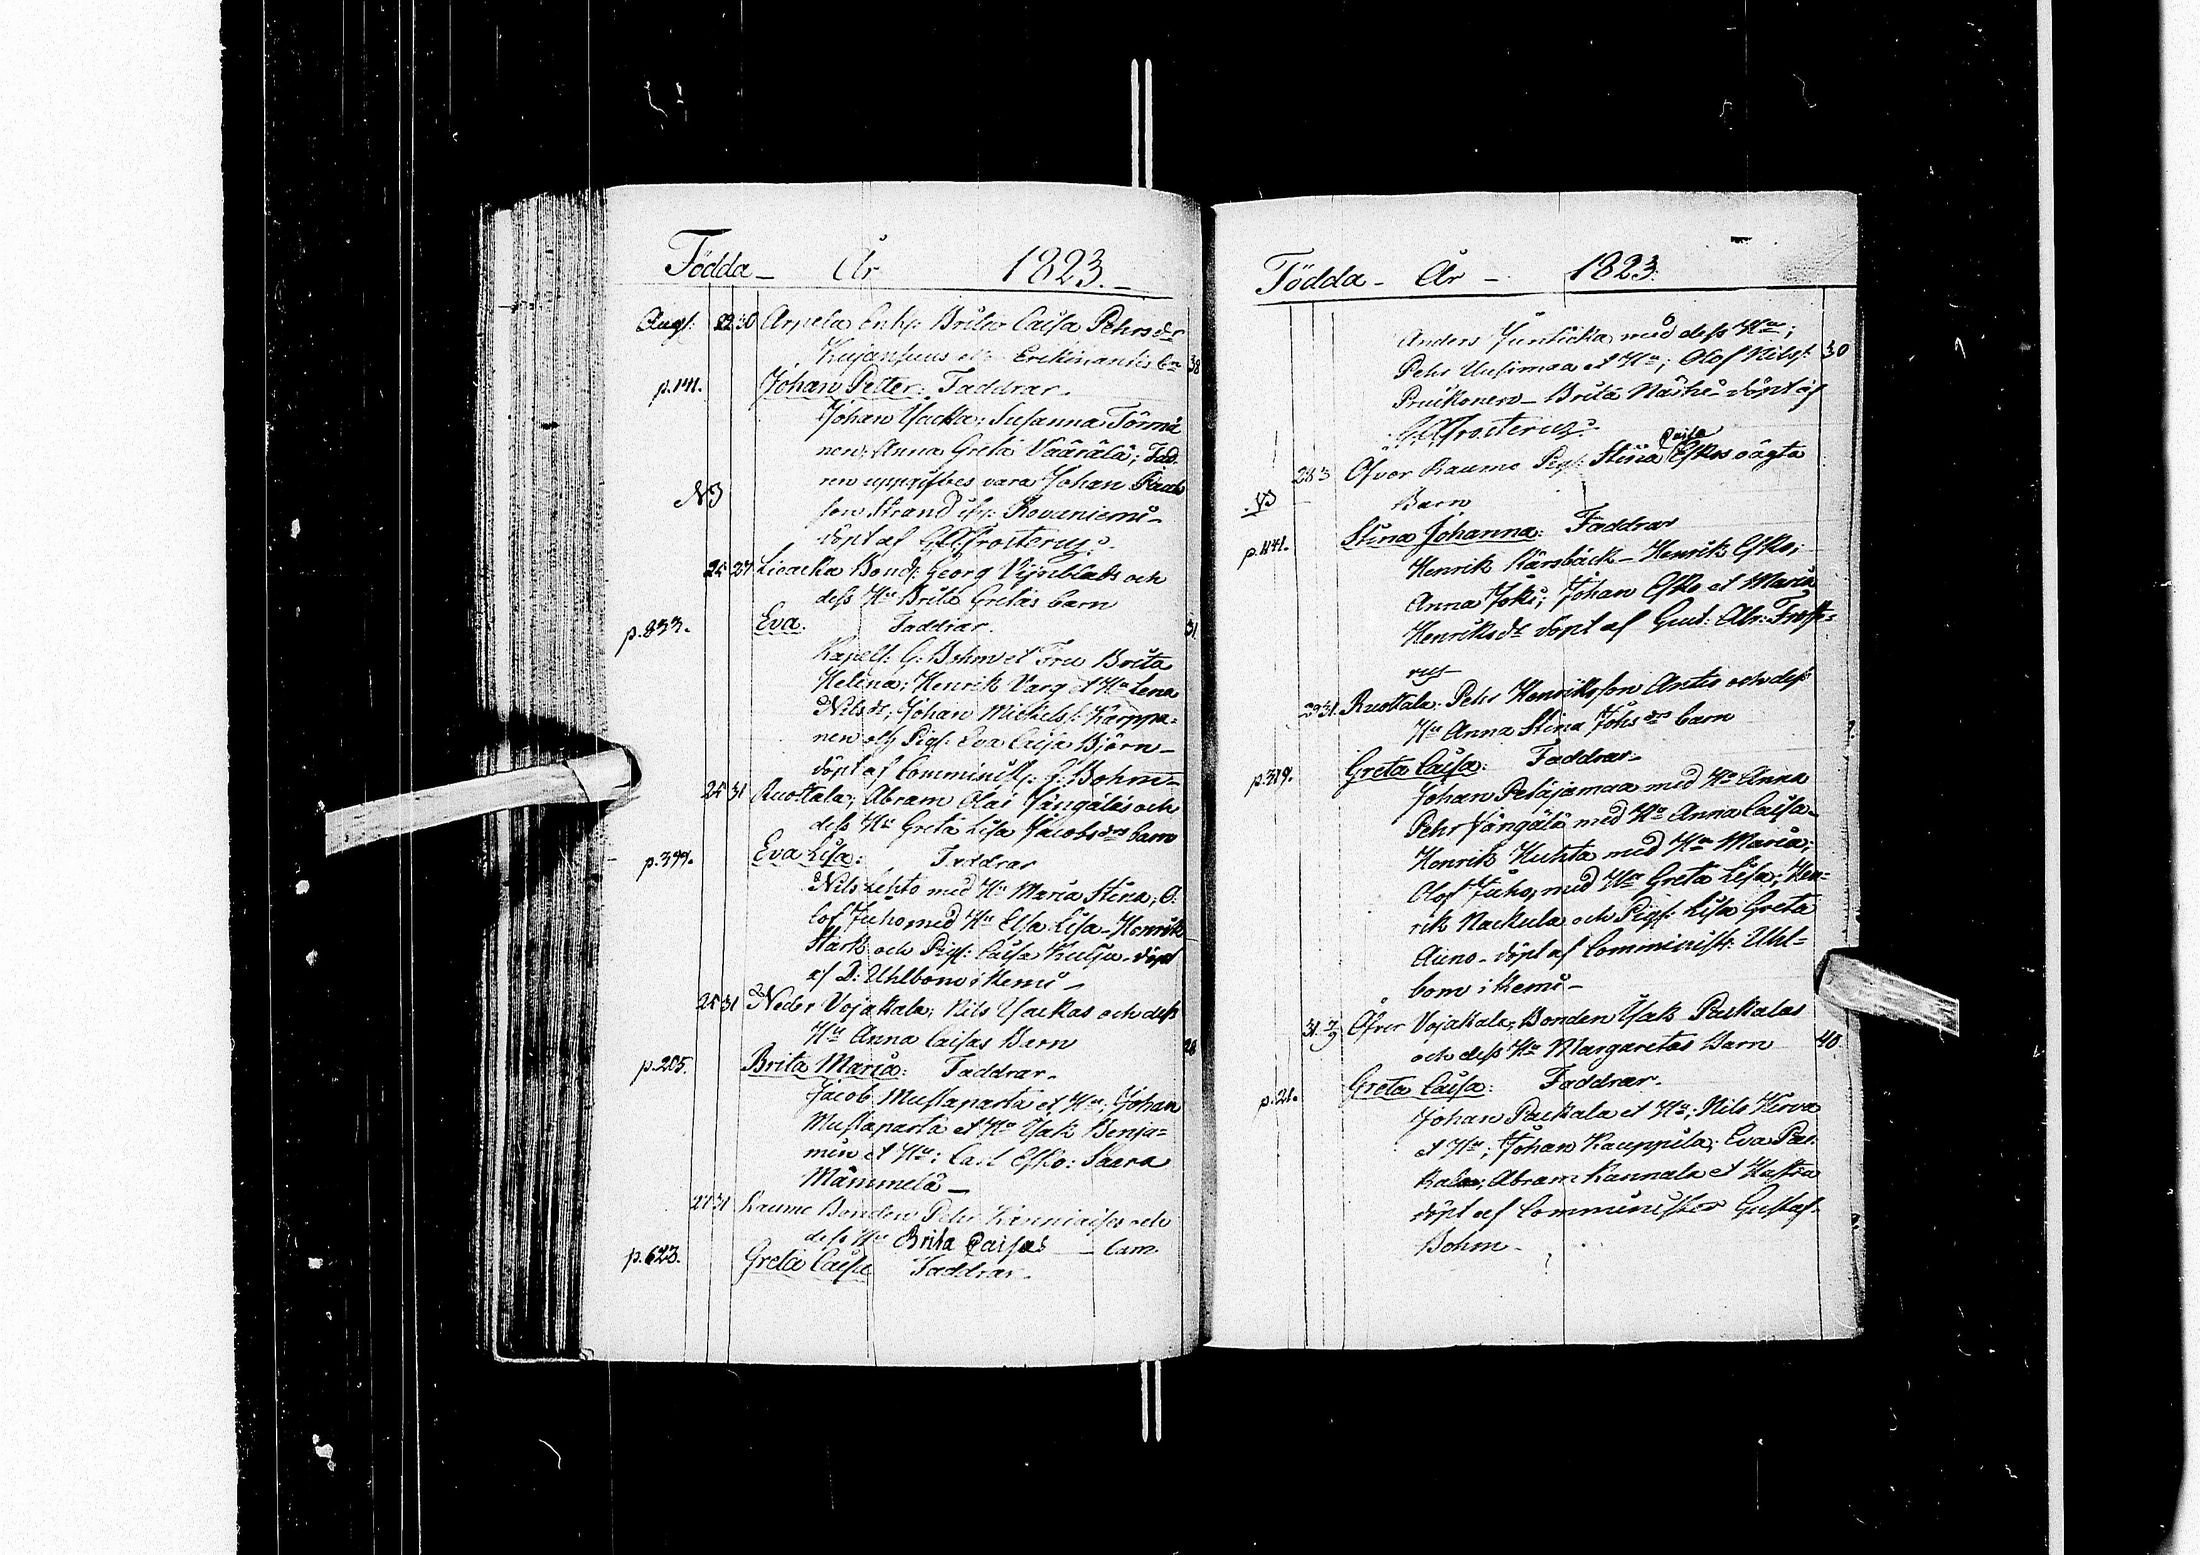 Födda – År 1823. –
Aug: 22 30 Arpela Enk: Brita Caisa Pehrsdr
Kujanpuus et Erikin 38
p. 141. Johan Petter: Faddrar.
Johan Yacka; Susanna Törmä
nen; Anna Greta Väärälä; Fad
ren uppgifves vara Johan
NB son Strand ifr: Rovaniemi –
döpt af G. A. Frosterus.
25 27 Liacka Bond: Georg Vijnblads och
dess Hu Brita Gretas barn
p. 833. Eva. Faddrar. 31
Kapell: G: Bohm et Fru Brita
Helena; Henrik Varg et Hu Lena
Nilsdr; Johan Michelss: Karppa=
nen och Pig: Eva Caisa Björn –
döpt af Comminist: G: Bohm –
25 31 Ruottala; Abram Olai Vångäläs och
dess Hu Greta Lisa Jacobsdrs barn
p. 399. Eva Lisa: Faddrar
Nils Lehto med Hu Maria Stina; O:
lof Juho, med Hu Elsa Lisa – Henrik
Stark och Pig: Caisa Kulju – döpt
af D: Uhlbom i Kemi –
25 31 Neder Vojakala; Nils Yackas och dess
Hu Anna Caisas Barn 28
p. 205. Brita Maria: Faddrar –
Jacob Mustaparta et Hu; Johan
Mustaparta et Hu Isak Benja=
min et Hu; Carl Esko: Saara
Mämmelä –
27 31 Raumo Bonden Pehr och
dess Hu Brita Caisas – barn
p. 623. Greta Caisa Faddrar –
Födda – År – 1823.
Anders Junticka, med dess Hu;
Pehr Uusimaa et Hu; Olof Nilss: 30
Pruikonen – Brita Näske – döpt af
G. A. Frosterus.
28 3 Öfver Raumo Pig: Stina Caisa Eskos oägta
NB Barn
p. 1141. Stina Johanna: Faddrar
Henrik Kärsbäck – Henrik Esko;
Anna Joki; Johan Esko et Maria
Henriksdr döpt af Gust: Abr: Froste=
rus –
29 31 Ruottala: Pehr Henriksson Antis och dess
Hu Anna Stina Johsdrs barn
p. 319. Greta Caisa: Faddrar –
Johan Peläjämaa med Hu Anna
Pehr Vångälä med Hu Anna Caisa –
Henrik Huhta med Hu Maria;
Olof Juho, med Hu Greta Lisa; Hen=
rik Nackula och Pig: Lisa Greta
Auno – döpt af Comminist: Uhl=
bom i Kemi –
31 7/9 Öfver Vojakala; Bonden Isak Packalas
och dess Hu Margaretas Barn 40
p. 21. Greta Caisa: Faddrar –
Johan Packala et Hu; Nils Kerva
et Hu; Johan Kauppila; Eva Pac
kala; Abram Kannala et Hustru
döpt af Comminister Gustaf
Bohm –